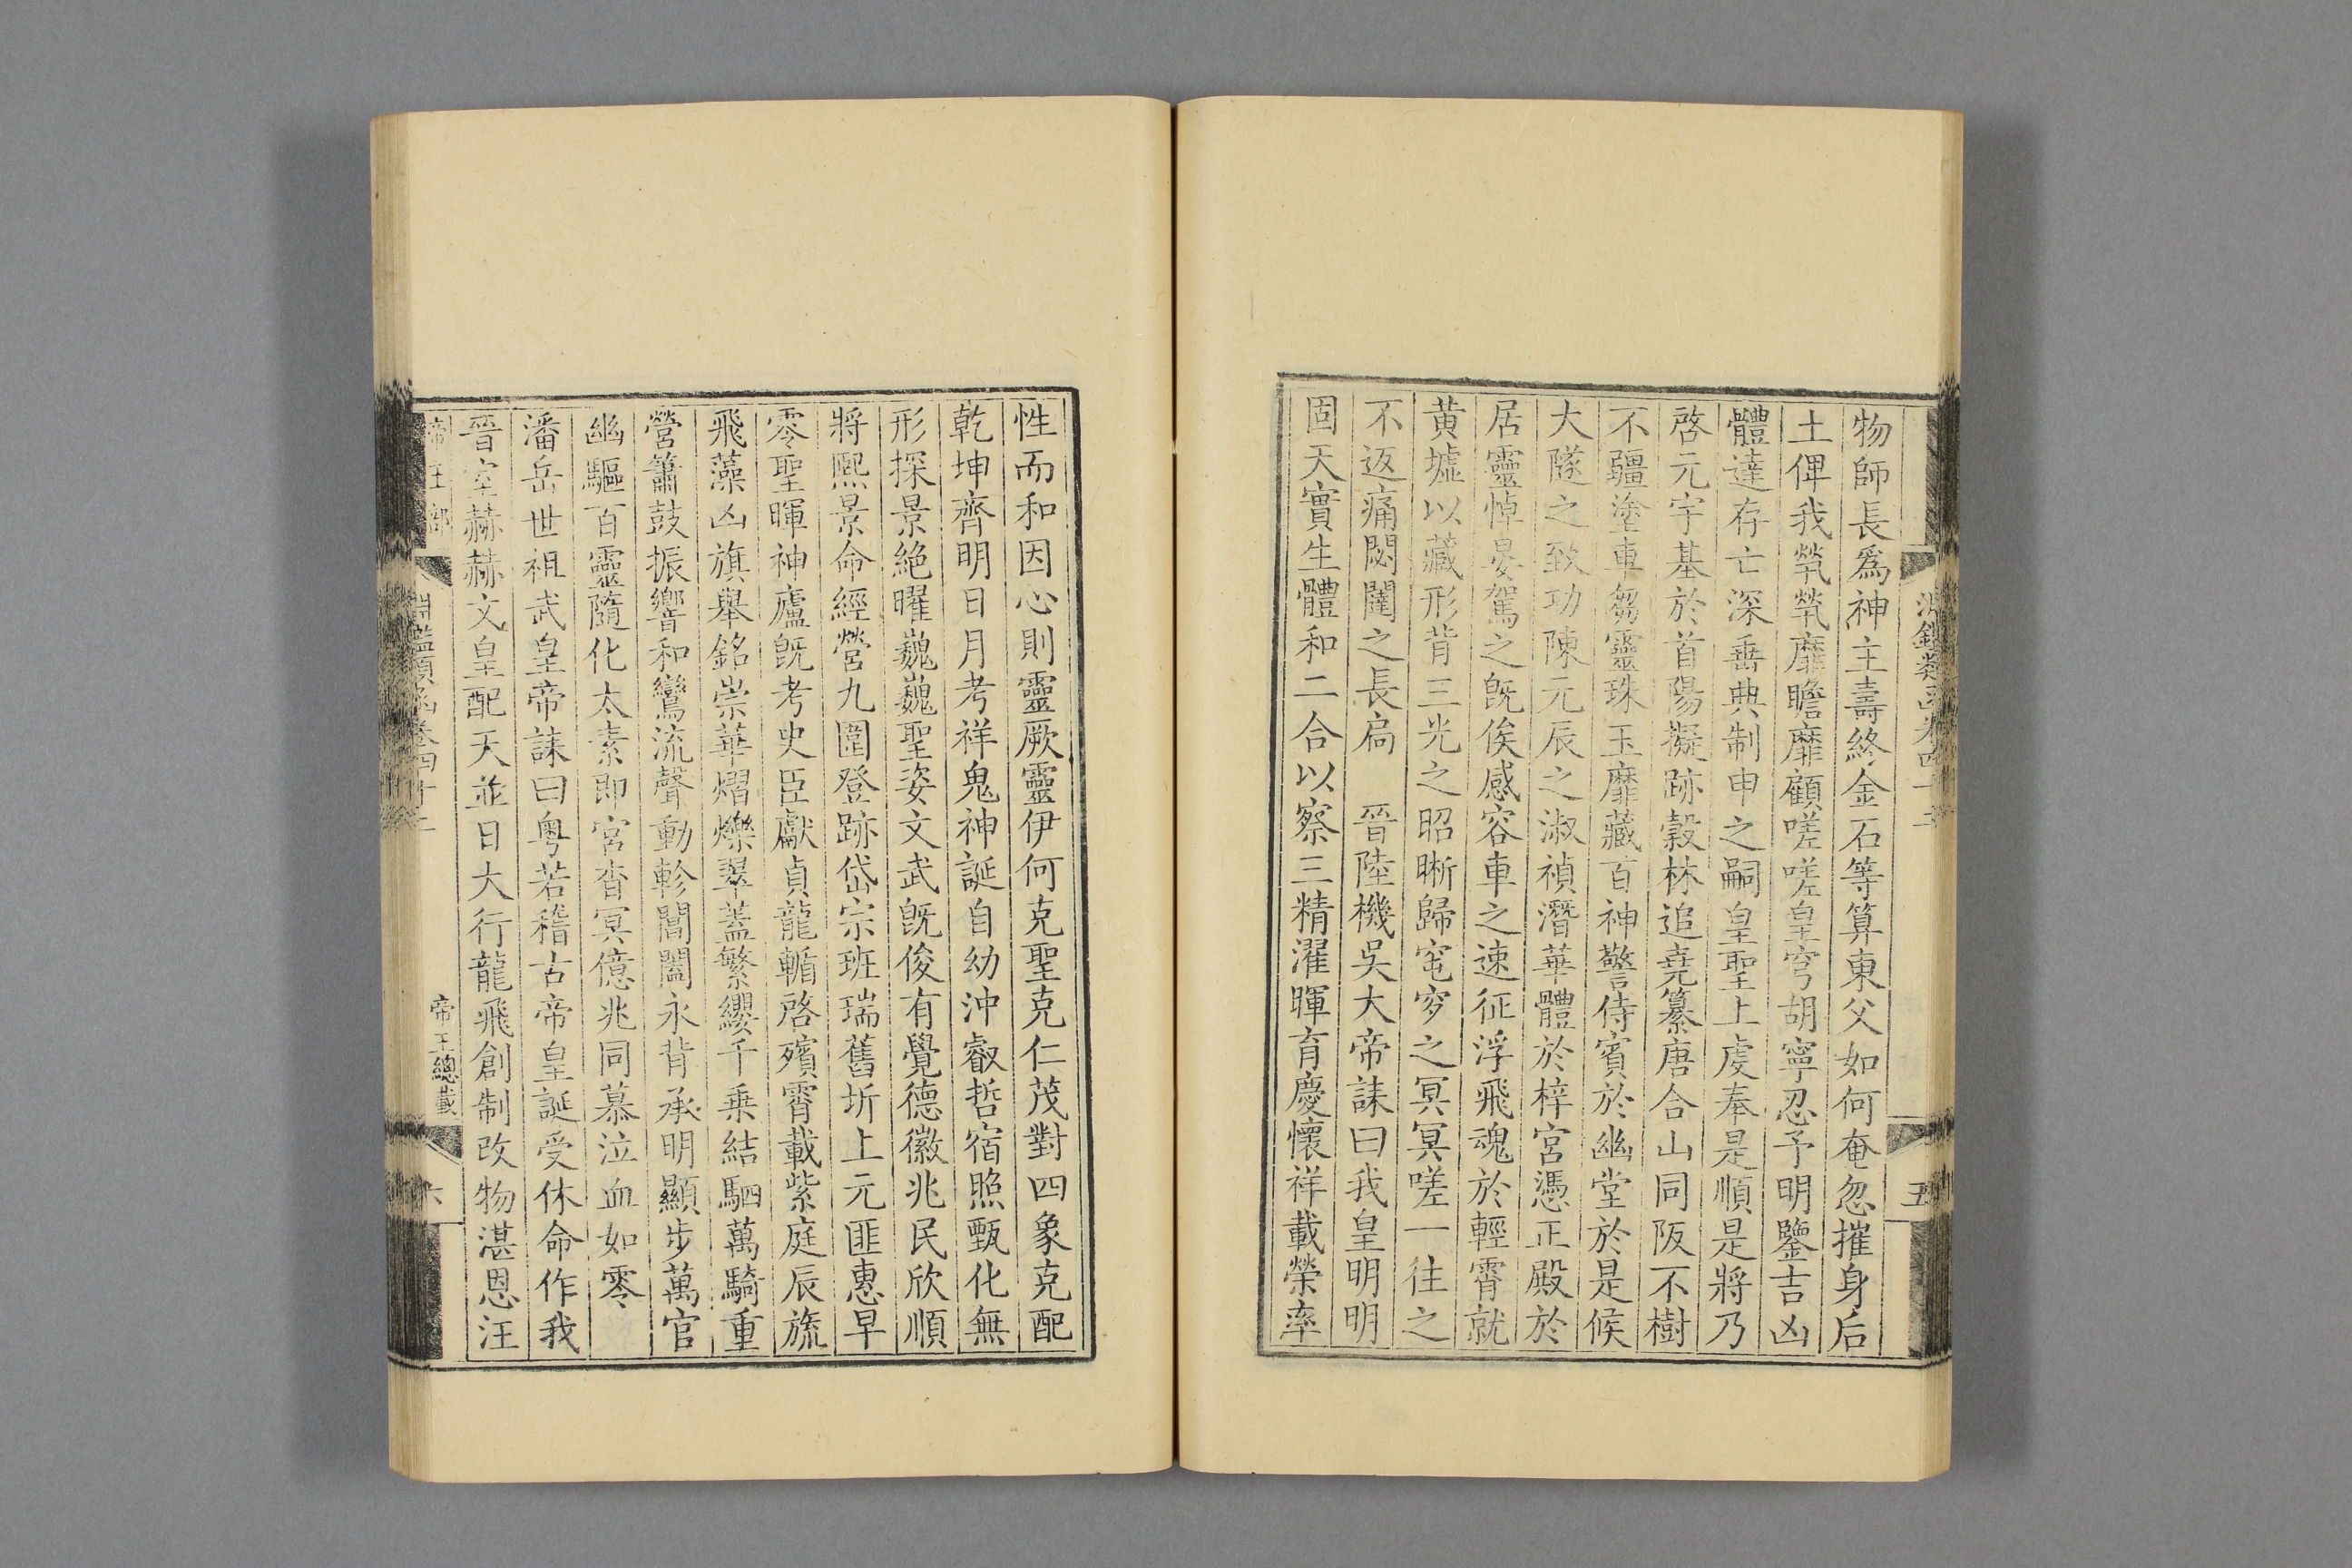 物師長爲神主壽終金石等算東父如何奄忽摧身后
土俾我煢煢靡瞻靡顧嗟嗟皇穹胡寧忍予明鑒吉凶
體達存亡深垂典制申之嗣皇聖上虔奉是順是將乃
啓元宇基於首陽擬跡穀林追堯纂唐合山同阪不樹
不疆塗車芻靈珠玉靡藏百神警侍賓於幽堂於是候
大隧之致功陳元辰之淑禎潛華體於梓宮憑正殿於
居靈悼晏駕之旣俟感容車之速征浮飛魂於輕霄就
黃墟以藏形背三光之昭晰歸窀穸之冥冥嗟一往之
不返痛閟闥之長扃　晉陸機吳大帝誄曰我皇明明
固天實生體和二合以察三精濯暉育慶懷祥載榮率
性而和因心則靈厥靈伊何克聖克仁茂對四象克配
乾坤齊明日月考祥鬼神誕自幼沖叡哲宿照甄化無
形探景絶曜巍巍聖姿文武旣俊有覺德徽兆民欣順
將熙景命經營九圍登跡岱宗班瑞舊圻上元匪惠早
零聖暉神廬旣考史臣獻貞龍輴啓殯霄載紫庭辰旒
飛藻凶旗舉銘崇華熠爍翠蓋繁纓千乘結駟萬騎重
營簫鼓振響和鸞流聲動軫閶闔永背承明顯步萬官
幽驅百靈隨化太素即宮杳冥億兆同慕泣血如零
潘岳世祖武皇帝誄曰粤若稽古帝皇誕受休命作我
晉室赫赫文皇配天並日大行龍飛創制改物湛恩汪
帝王部
淵鑑類函卷四十二
帝王總載
六